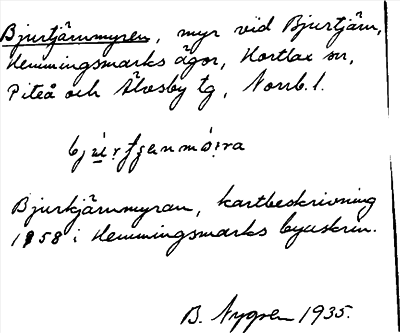 Bjurtjärnmyren, myr vid Bjurtjärn,
Hemmingsmarks ägor, Hortlax sn,
Piteå och Älvsby tg, Norrb. l.
Bjurkjärnmyran, kartbeskrivning
1958 i Hemmingsmarks byaskrin.
B. Nygren 1935.